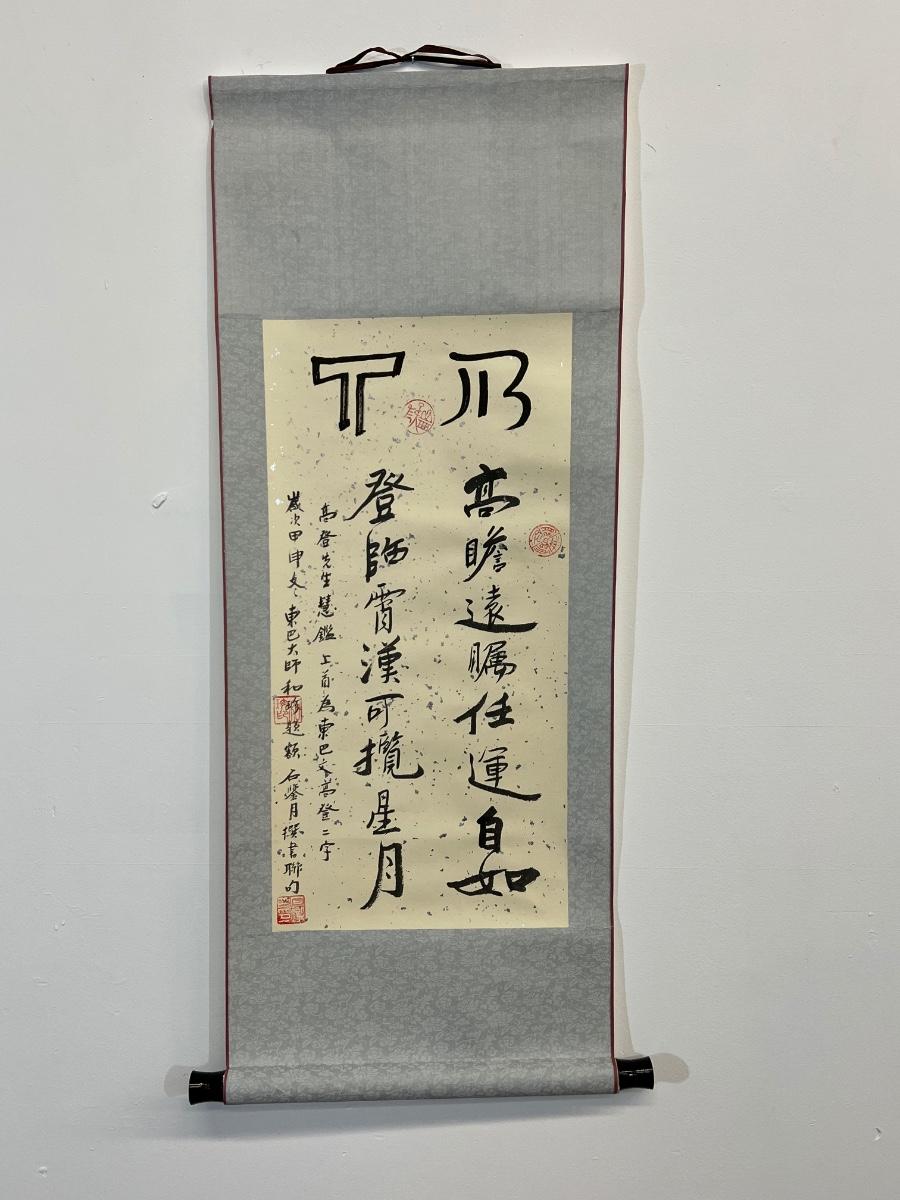 高瞻遠矚任運自如
登臨霄漢可攬星月
高登先生慧鑑 上首為東巴文高登二字
歲次甲申冬 東巴大師和 題額 石鑒月撰書聯句